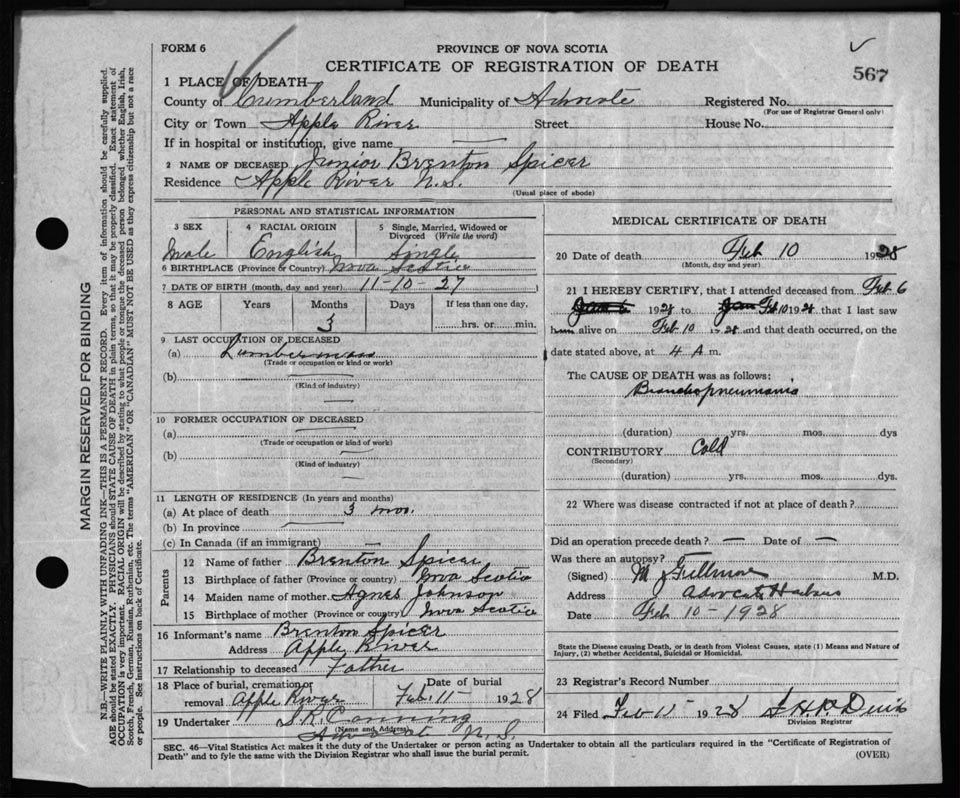 FORM 6
PROVINCE OF NOVA SCOTIA
CERTIFICATE OF REGISTRATION OF DEATH
567
1 PLACE OF DEATH
County of Cumberland Municipality of Registered No.
(For use of Registrar General only)
City or Town Apple River Street House No.
If in hospital or institution, give name —
2 NAME OF DECEASED Junior Brenton Spicer
Residence Apple River N.S.
(Usual place of abode)
PERSONAL AND STATISTICAL INFORMATION
3 SEX 4 RACIAL ORIGIN 5 Single, Married, Widowed or Divorced (Write the word)
Male English Single
6 BIRTHPLACE (Province or Country) Nova Scotia
7 DATE OF BIRTH (month, day and year) 11-10-27
8 AGE Years Months Days If less than one day,
3 hrs. or min.
9 LAST OCCUPATION OF DECEASED
(a) Lumberman
(Trade or occupation or kind or work)
(b) —
(Kind of industry)
10 FORMER OCCUPATION OF DECEASED
(a) —
(Trade or occupation or kind of work)
(b) —
(Kind of industry)
11 LENGTH OF RESIDENCE (In years and months)
(a) At place of death 3 mos.
(b) In province —
(c) In Canada (if an immigrant) —
Parents
12 Name of father Brenton Spicer
13 Birthplace of father (Province or country) Nova Scotia
14 Maiden name of mother Agnes Johnson
15 Birthplace of mother (Province or country) Nova Scotia
16 Informant's name Brenton Spicer
Address Apple River
17 Relationship to deceased Father
18 Place of burial, cremation or removal Apple River Date of burial Feb. 11 - 1928
19 Undertaker
(Name and Address)
N.S.
MEDICAL CERTIFICATE OF DEATH
20 Date of death Feb 10 1928
(Month, day and year)
21 I HEREBY CERTIFY, that I attended deceased from Feb 6
1928 to Feb 10 1928 that I last saw
h alive on Feb 10 1928 and that death occurred, on the
date stated above, at 4 A. m.
The CAUSE OF DEATH was as follows:
Bronchopneumonia
(duration) yrs. mos. dys
CONTRIBUTORY Cold
(Secondary)
(duration) yrs. mos. dys
22 Where was disease contracted if not at place of death?
Did an operation precede death? — Date of —
Was there an autopsy?
(Signed) M.D.
Address Advocate Harbour
Date Feb 10 - 1928
State the Disease causing Death, or in death from Violent Causes, state (1) Means and Nature of Injury, (2) whether Accidental, Suicidal or Homicidal.
23 Registrar's Record Number
24 Filed Feb 11 - 1928
Division Registrar
SEC. 46—Vital Statistics Act makes it the duty of the Undertaker or person acting as Undertaker to obtain all the particulars required in the "Certificate of Registration of
Death" and to fyle the same with the Division Registrar who shall issue the burial permit.
(OVER)
MARGIN RESERVED FOR BINDING
N.B.—WRITE PLAINLY WITH UNFADING INK—THIS IS A PERMANENT RECORD. Every item of information should be carefully supplied.
AGE should be stated EXACTLY. PHYSICIANS should STATE CAUSE OF DEATH in plain terms, so that it may be properly classified. Exact statement of
OCCUPATION is very important. RACIAL ORIGIN will be described by stating to what people or tongue the deceased person belonged whether English, Irish,
Scotch, French, German, Russian, Ruthenian, etc. The terms "AMERICAN" OR "CANADIAN" MUST NOT BE USED as they express citizenship but not a race
or people. See instructions on back of Certificate.